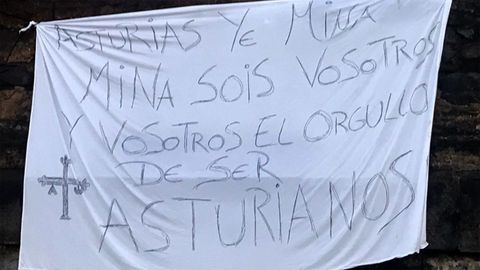 ASTURIAS YE MINA
MINA SOIS VOSOTROS
Y VOSOTROS EL ORGULLO
DE SER
ASTURIANOS